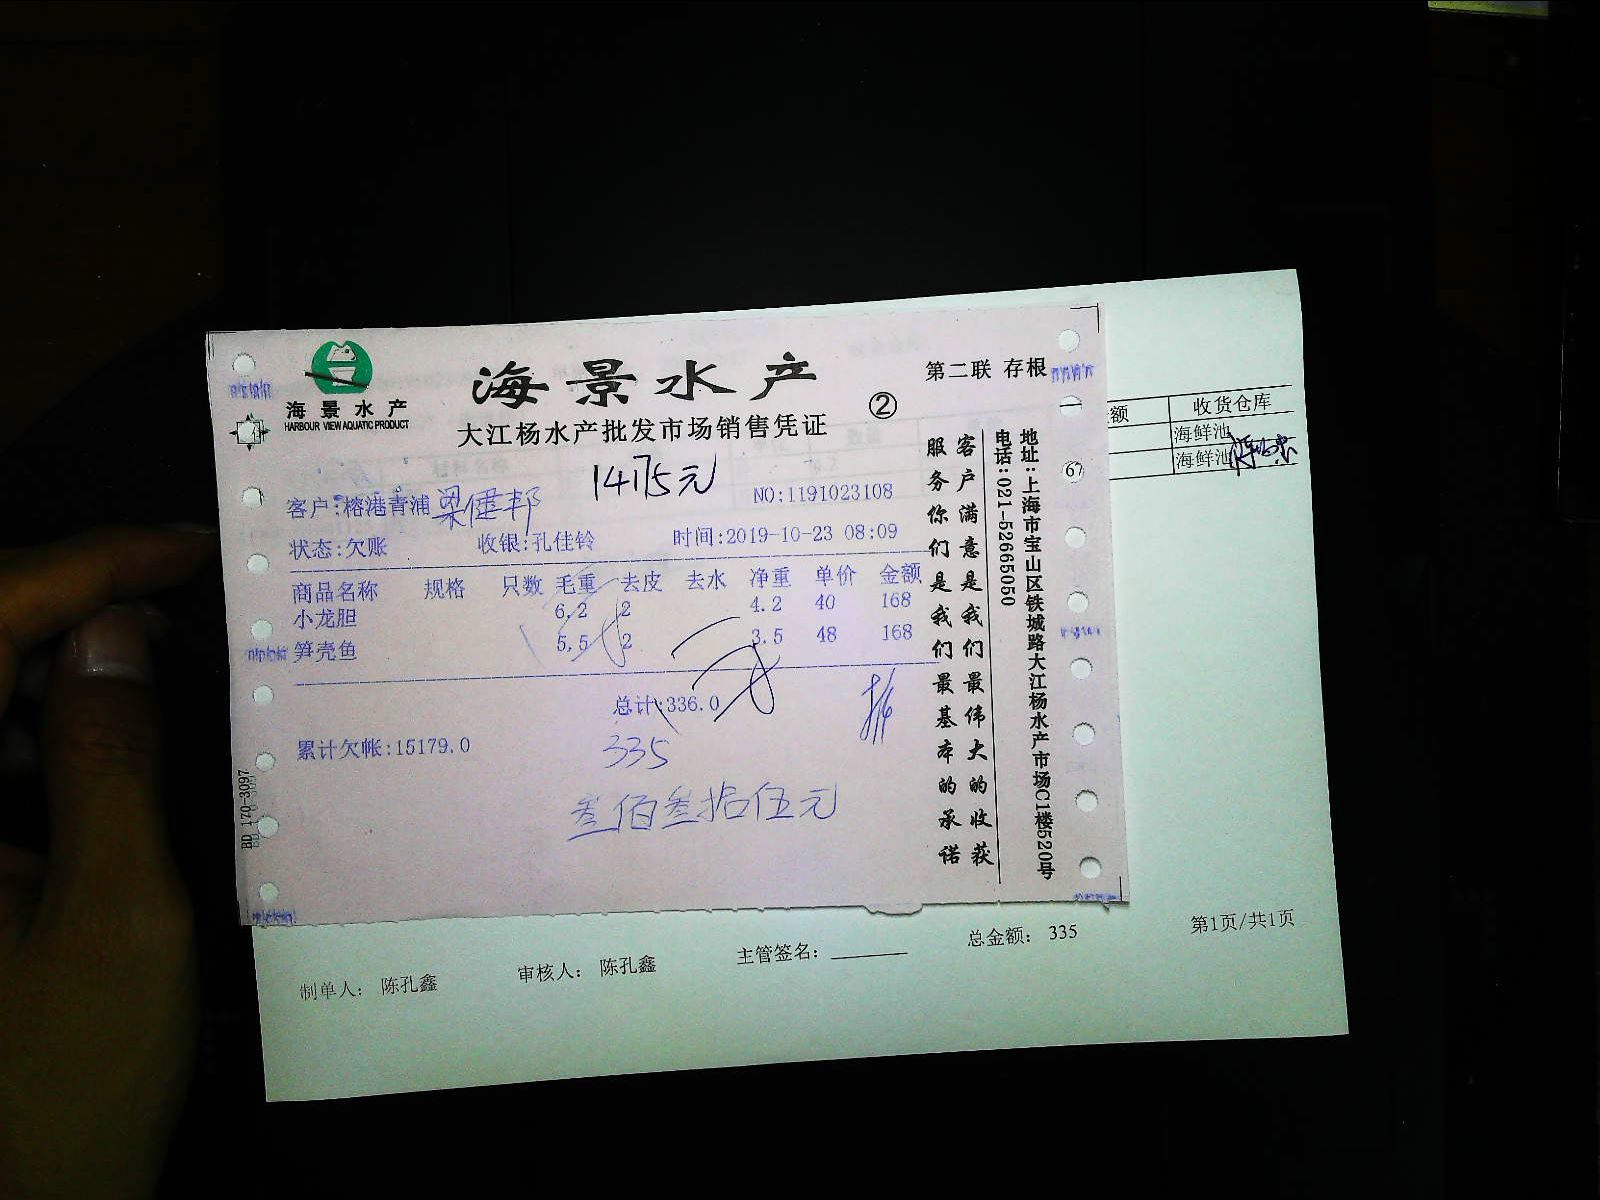 海景水产
HARBOUR VIEW AQUATIC PRODUCT
海景水产
大江杨水产批发市场销售凭证
②
第二联 存根
14175元
客户:榕港青浦 梁健邦
NO:1191023108
状态:欠账 收银:孔佳铃 时间:2019-10-23 08:09
商品名称 规格 只数 毛重 去皮 去水 净重 单价 金额
小龙胆 6.2 2 4.2 40 168
笋壳鱼 5.5 2 3.5 48 168
总计:336.0
累计欠帐:15179.0
335
叁佰叁拾伍元
客户满意是我们最伟大的收获
服务你们是我们最基本的承诺
地址:上海市宝山区铁城路大江杨水产市场C1楼520号
电话:021-52665050
BD 170-3097
67
额 收货仓库
海鲜池
海鲜池
制单人: 陈孔鑫 审核人: 陈孔鑫 主管签名: 总金额: 335 第1页/共1页